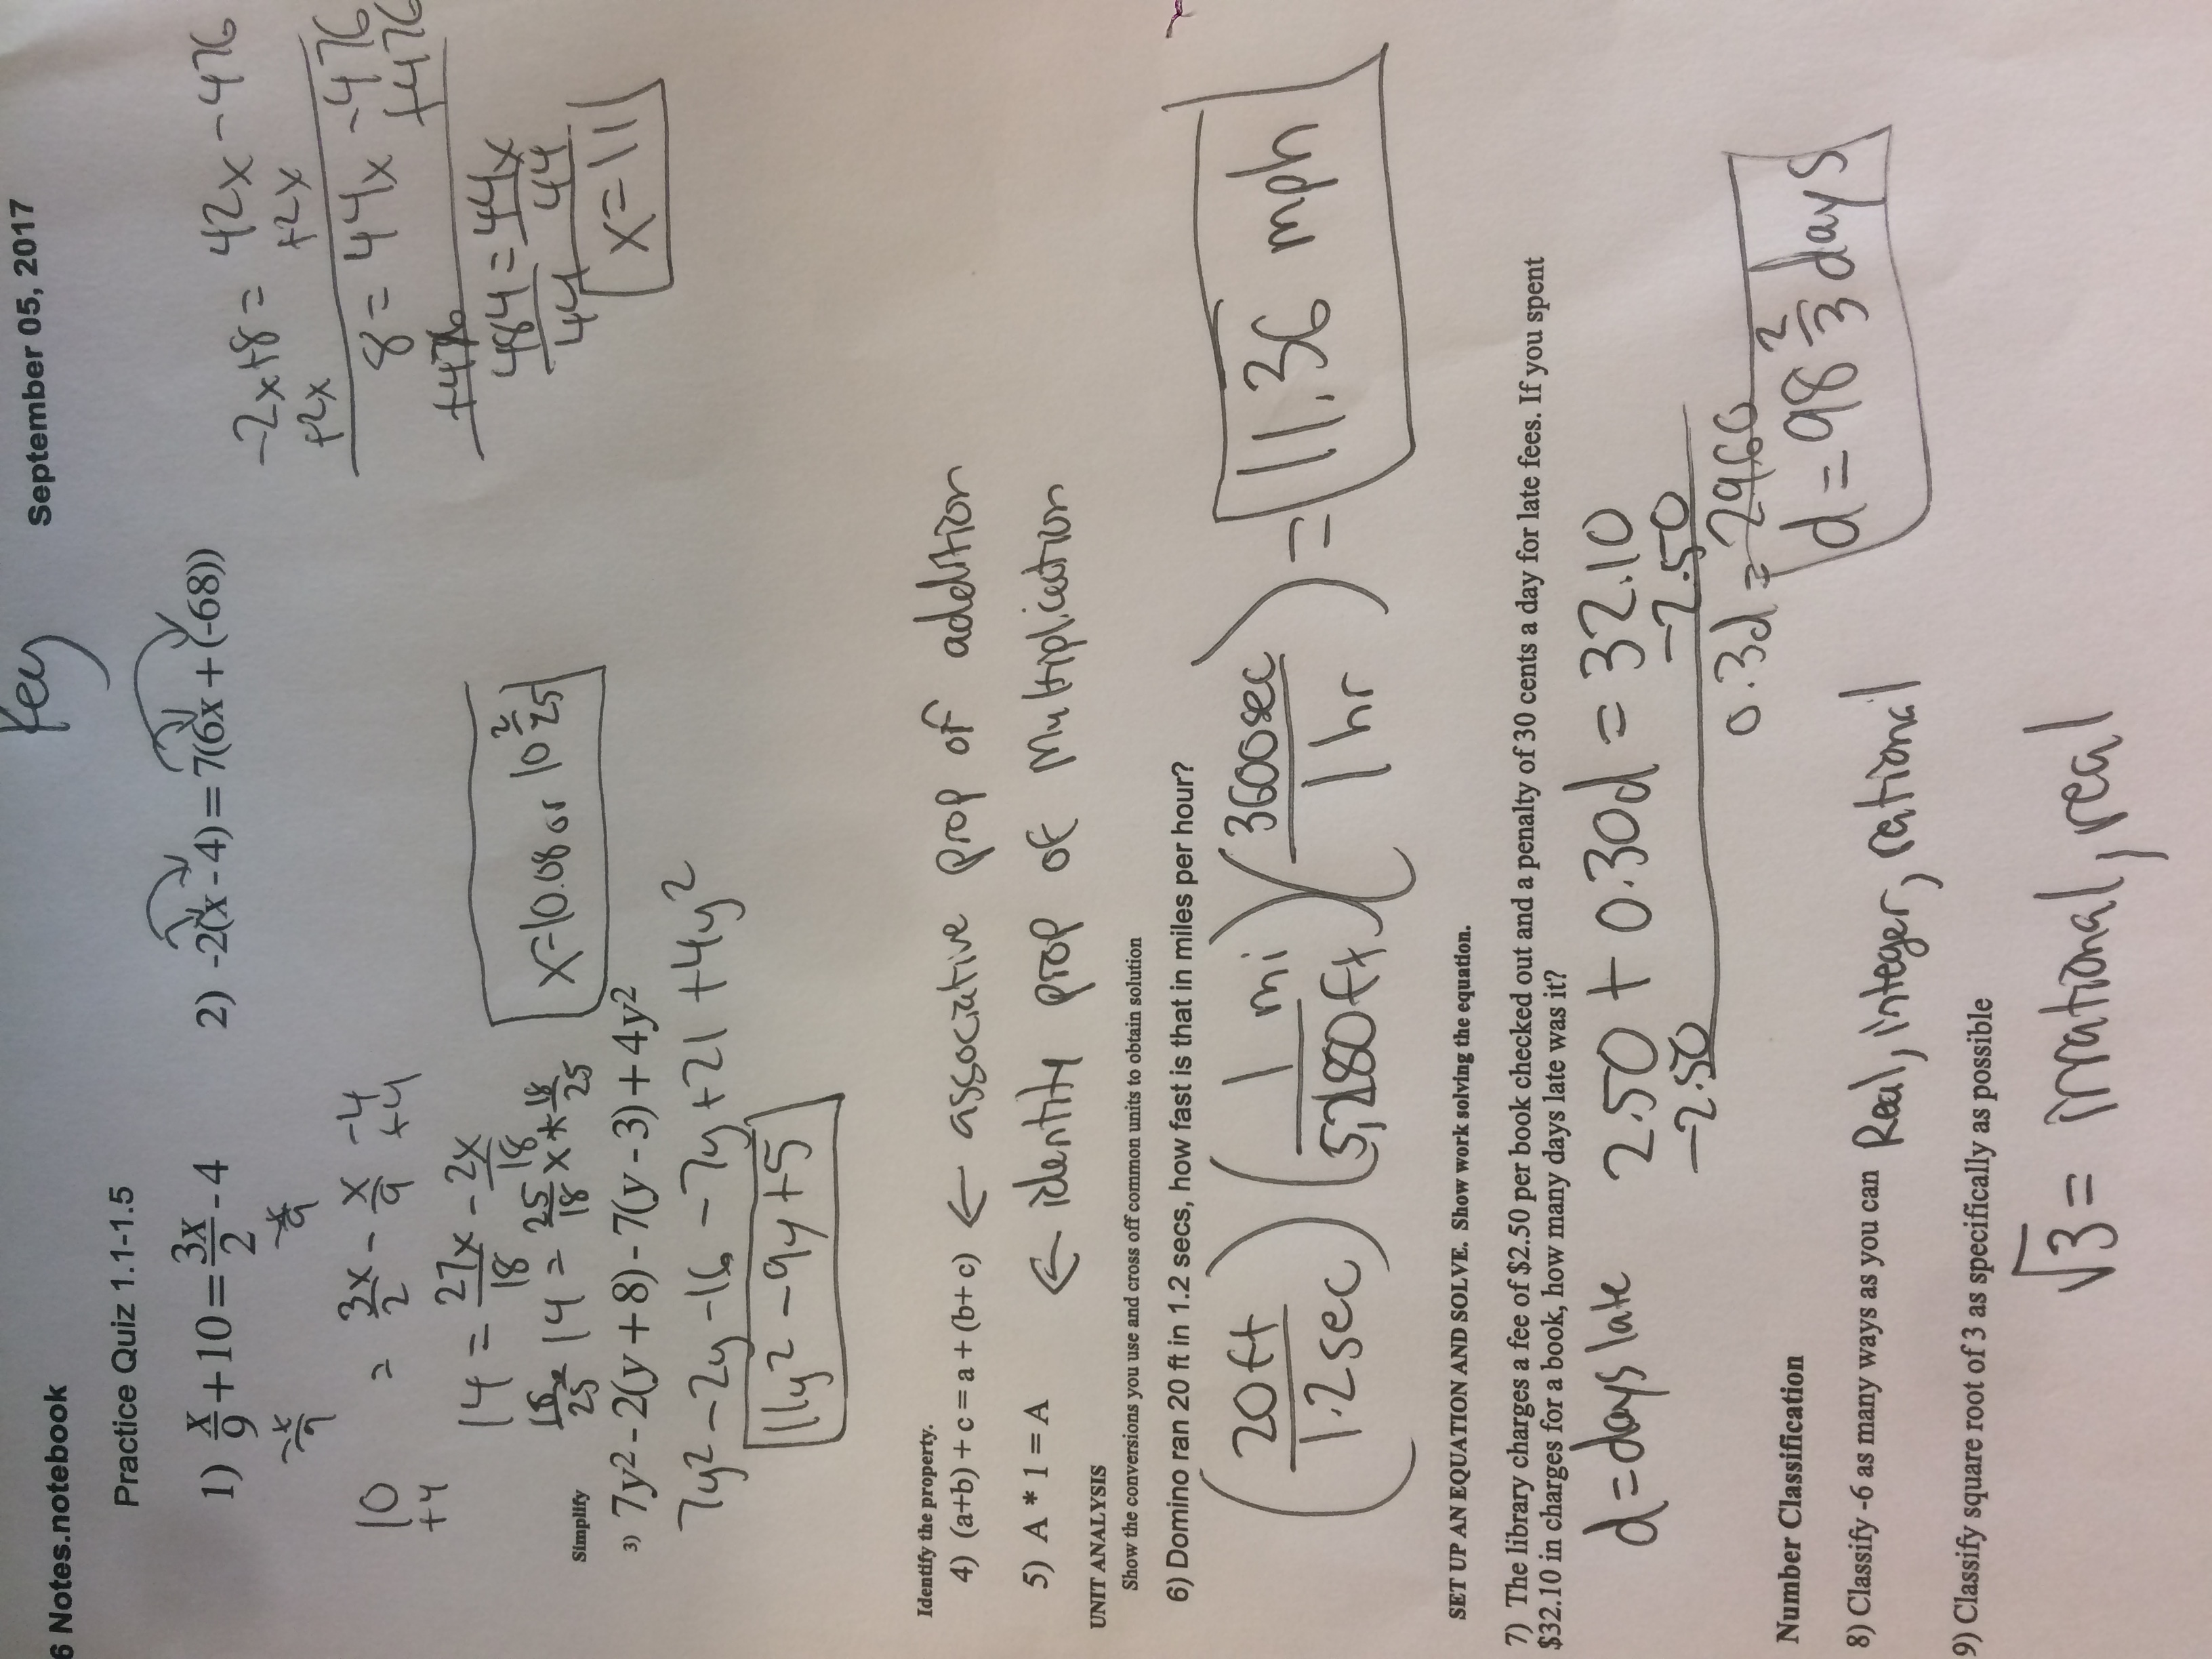 Key
6 Notes.notebook September 05, 2017
Practice Quiz 1.1-1.5
1) x/9 + 10 = 3x/2 - 4
-x/9 -x/9
10 = 3x/2 - x/9 -4
+4 +4
14 = 27x/18 - 2x/18
18/25 * 14 = 25/18 x * 18/25
x=10.08 or 10 2/25
2) -2(x - 4) = 7(6x + (-68))
-2x+8 = 42x - 476
+2x +2x
8 = 44x - 476
+476 +476
484/44 = 44x/44
x=11
Simplify
3) 7y² - 2(y + 8) - 7(y - 3) + 4y²
7y² - 2y - 16 - 7y + 21 + 4y²
11y² - 9y + 5
Identify the property.
4) (a+b) + c = a + (b+ c) ← associative prop of addition
5) A * 1 = A ← identity prop of Multiplication
UNIT ANALYSIS
Show the conversions you use and cross off common units to obtain solution
6) Domino ran 20 ft in 1.2 secs, how fast is that in miles per hour?
(20ft/1.2sec)(1 mi/5,280ft)(3600sec/1hr) = 11.36 mph
SET UP AN EQUATION AND SOLVE. Show work solving the equation.
7) The library charges a fee of $2.50 per book checked out and a penalty of 30 cents a day for late fees. If you spent
$32.10 in charges for a book, how many days late was it?
d=days late 2.50 + 0.30d = 32.10
-2.50 -2.50
0.3d = 29.60
d=98 2/3 days
Number Classification
8) Classify -6 as many ways as you can Real, integer, rational
9) Classify square root of 3 as specifically as possible
√3 = irrational, real